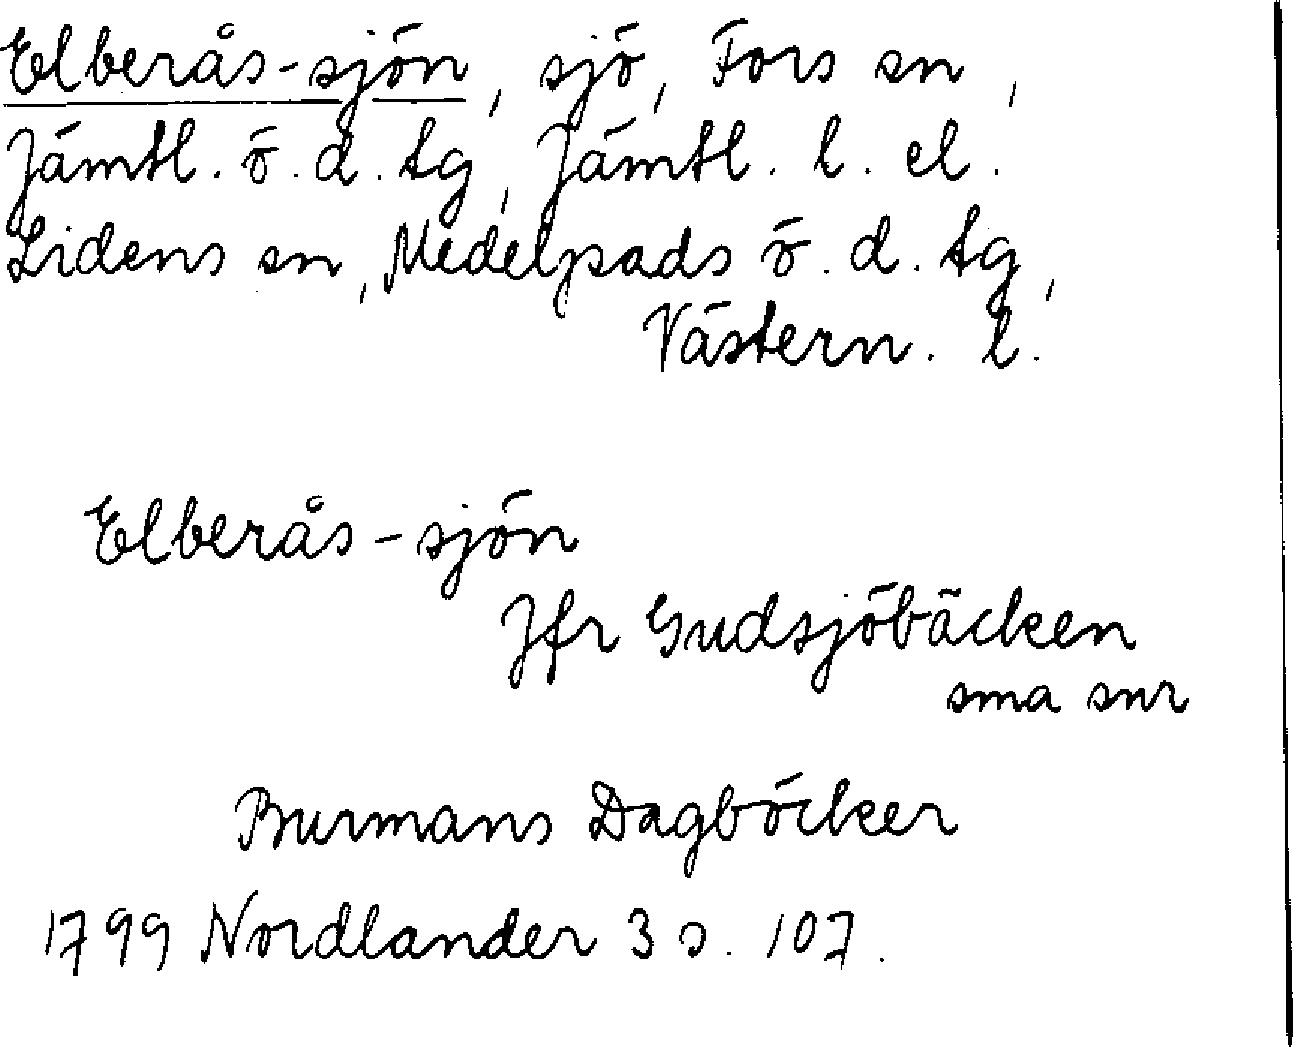 Elberås-sjön, sjö, Fors sn,
Jämtl. ö. d. tg, Jämtl. l. el.
Lidens sn, Medelpads ö. d. tg,
Västern. l.
Elberås-sjön
Jfr Gudsjöbäcken
sma snr
Burmans Dagböcker
1799 Nordlander 3 s. 107.